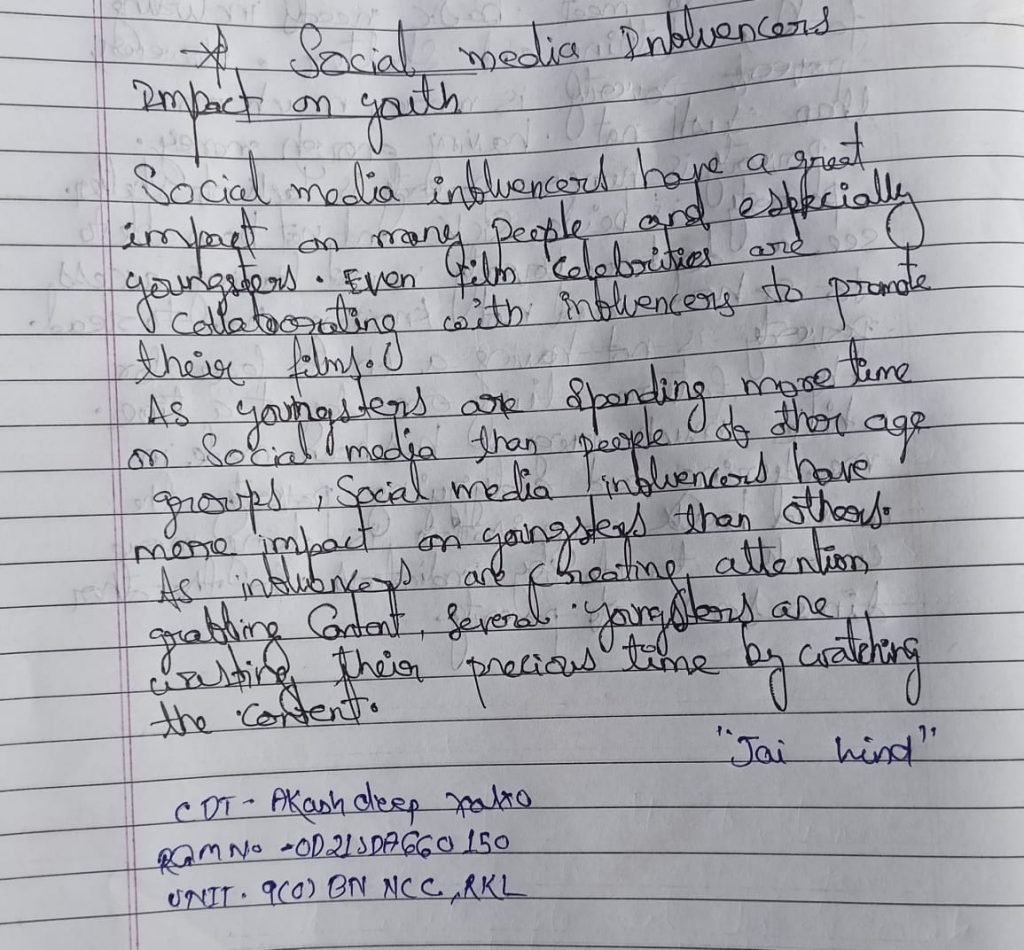 * Social media Influencers
Impact on youth
Social media influencers have a great
impact on many people and especially
youngsters. Even film celebrities are
collaborating with influencers to promote
their films.
As youngsters are spending more time
on Social media than people of other age
groups, Social media influencers have
more impact on youngsters than others.
As influencers are creating attention
grabbing Content, several youngsters are
wasting their precious time by watching
the content.
"Jai hind"
CDT - Akash deep
No - OD21SDA660150
UNIT. 9(O) BN NCC, RKL